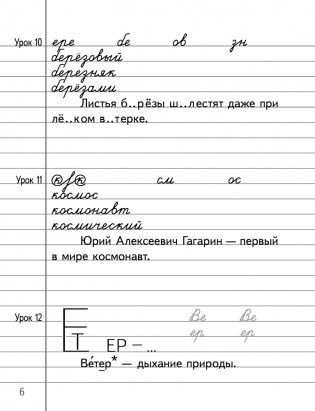 Урок 10 ере бе ов зн
берёзовый
березняк
берёзами
Листья б..рёзы ш..лестят даже при
лё..ком в..терке.
Урок 11 см ос
космос
космонавт
космический
Юрий Алексеевич Гагарин — первый
в мире космонавт.
Урок 12 Ве Ве
ер ер
ЕР – ...
Ве́тер* — дыхание природы.
6